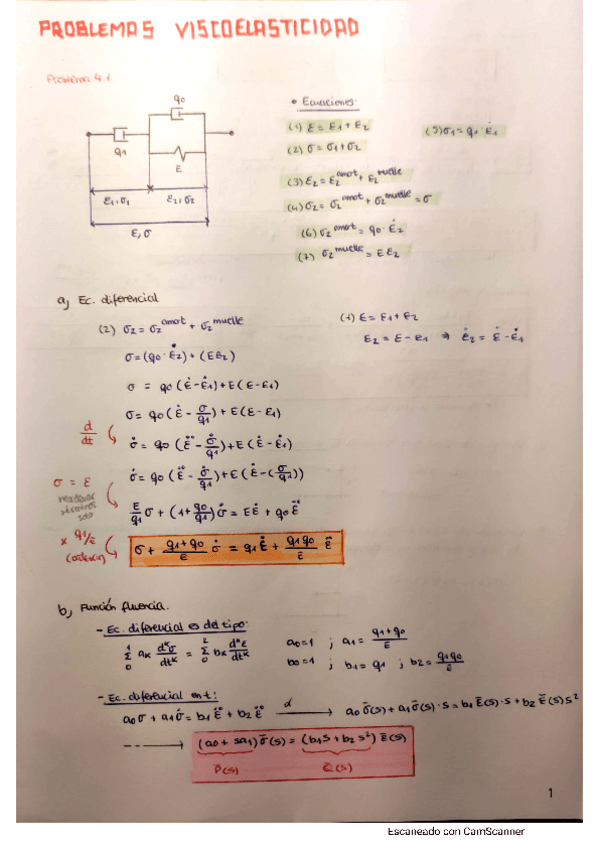 PROBLEMAS VISCOELASTICIDAD
Problema 4.1
q0
q1
E
ε1, σ1
ε2, σ2
ε, σ
• Ecuaciones:
(1) ε = ε1 + ε2
(5) σ1 = q1 · ε̇1
(2) σ = σ1 + σ2
(3) ε2 = ε2^amort + ε2^muelle
(4) σ2 = σ2^amort + σ2^muelle = σ
(6) σ2^amort = q0 · ε̇2
(7) σ2^muelle = E ε2
a) Ec. diferencial
(2) σ2 = σ2^amort + σ2^muelle
(1) ε = ε1 + ε2
ε2 = ε - ε1 ⇒ ε̇2 = ε̇ - ε̇1
σ = (q0 · ε̇2) + (E ε2)
σ = q0 (ε̇ - ε̇1) + E (ε - ε1)
σ = q0 (ε̇ - σ/q1) + E (ε - ε1)
d/dt
σ̇ = q0 (ε̈ - σ̇/q1) + E (ε̇ - ε̇1)
σ̇ = q0 (ε̈ - σ̇/q1) + E (ε̇ - (σ/q1))
σ = ε
E/q1 σ + (1 + q0/q1) σ̇ = E ε̇ + q0 ε̈
x q1/E
σ + (q1+q0)/E σ̇ = q1 ε̇ + (q1q0)/E ε̈
b) Función fluencia.
- Ec. diferencial es del tipo:
∑₀¹ ak d^kσ/dt^k = ∑₀² bk d^kε/dt^k
a0 = 1 ; a1 = (q1+q0)/E
b0 = 1 ; b1 = q1 ; b2 = (q1q0)/E
- Ec. diferencial en t:
a0 σ + a1 σ̇ = b1 ε̇ + b2 ε̈ → a0 σ̄(s) + a1 σ̄(s) · s = b1 ε̄(s) · s + b2 ε̄(s) s²
(a0 + sa1) σ̄(s) = (b1 s + b2 s²) ε̄(s)
P̄(s)
Q̄(s)
1
Escaneado con CamScanner